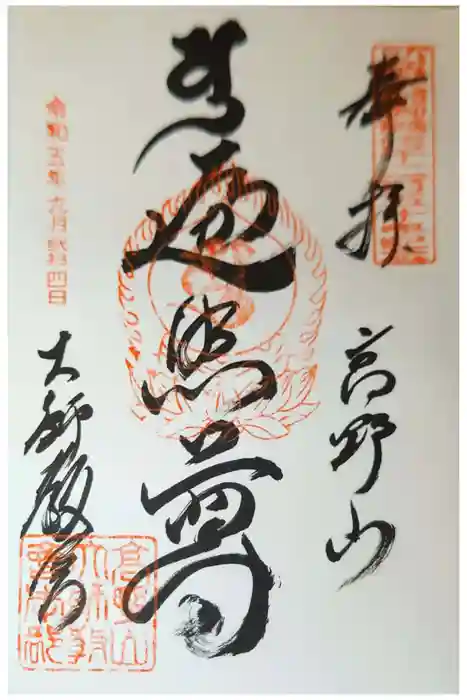 奉拝
高野山
遍照尊
令和五年九月弐拾四日
大師教会
高野山
大師教
會本部